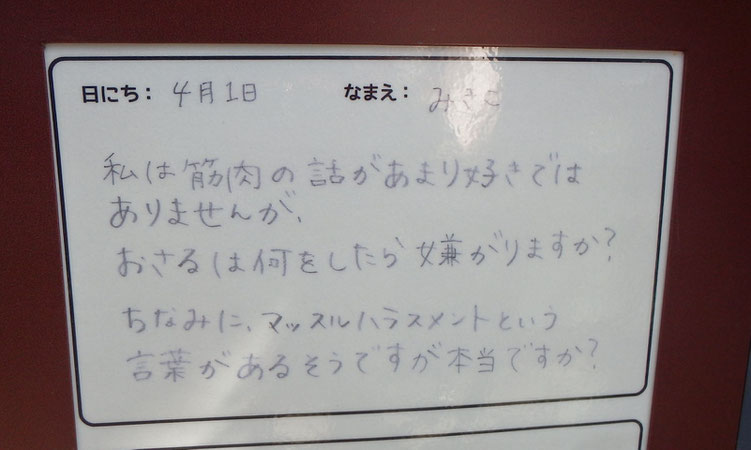 日にち： 4月1日 なまえ： みさこ
私は筋肉の話があまり好きでは
ありませんが、
おさるは何をしたら嫌がりますか？
ちなみに、マッスルハラスメントという
言葉があるそうですが本当ですか？